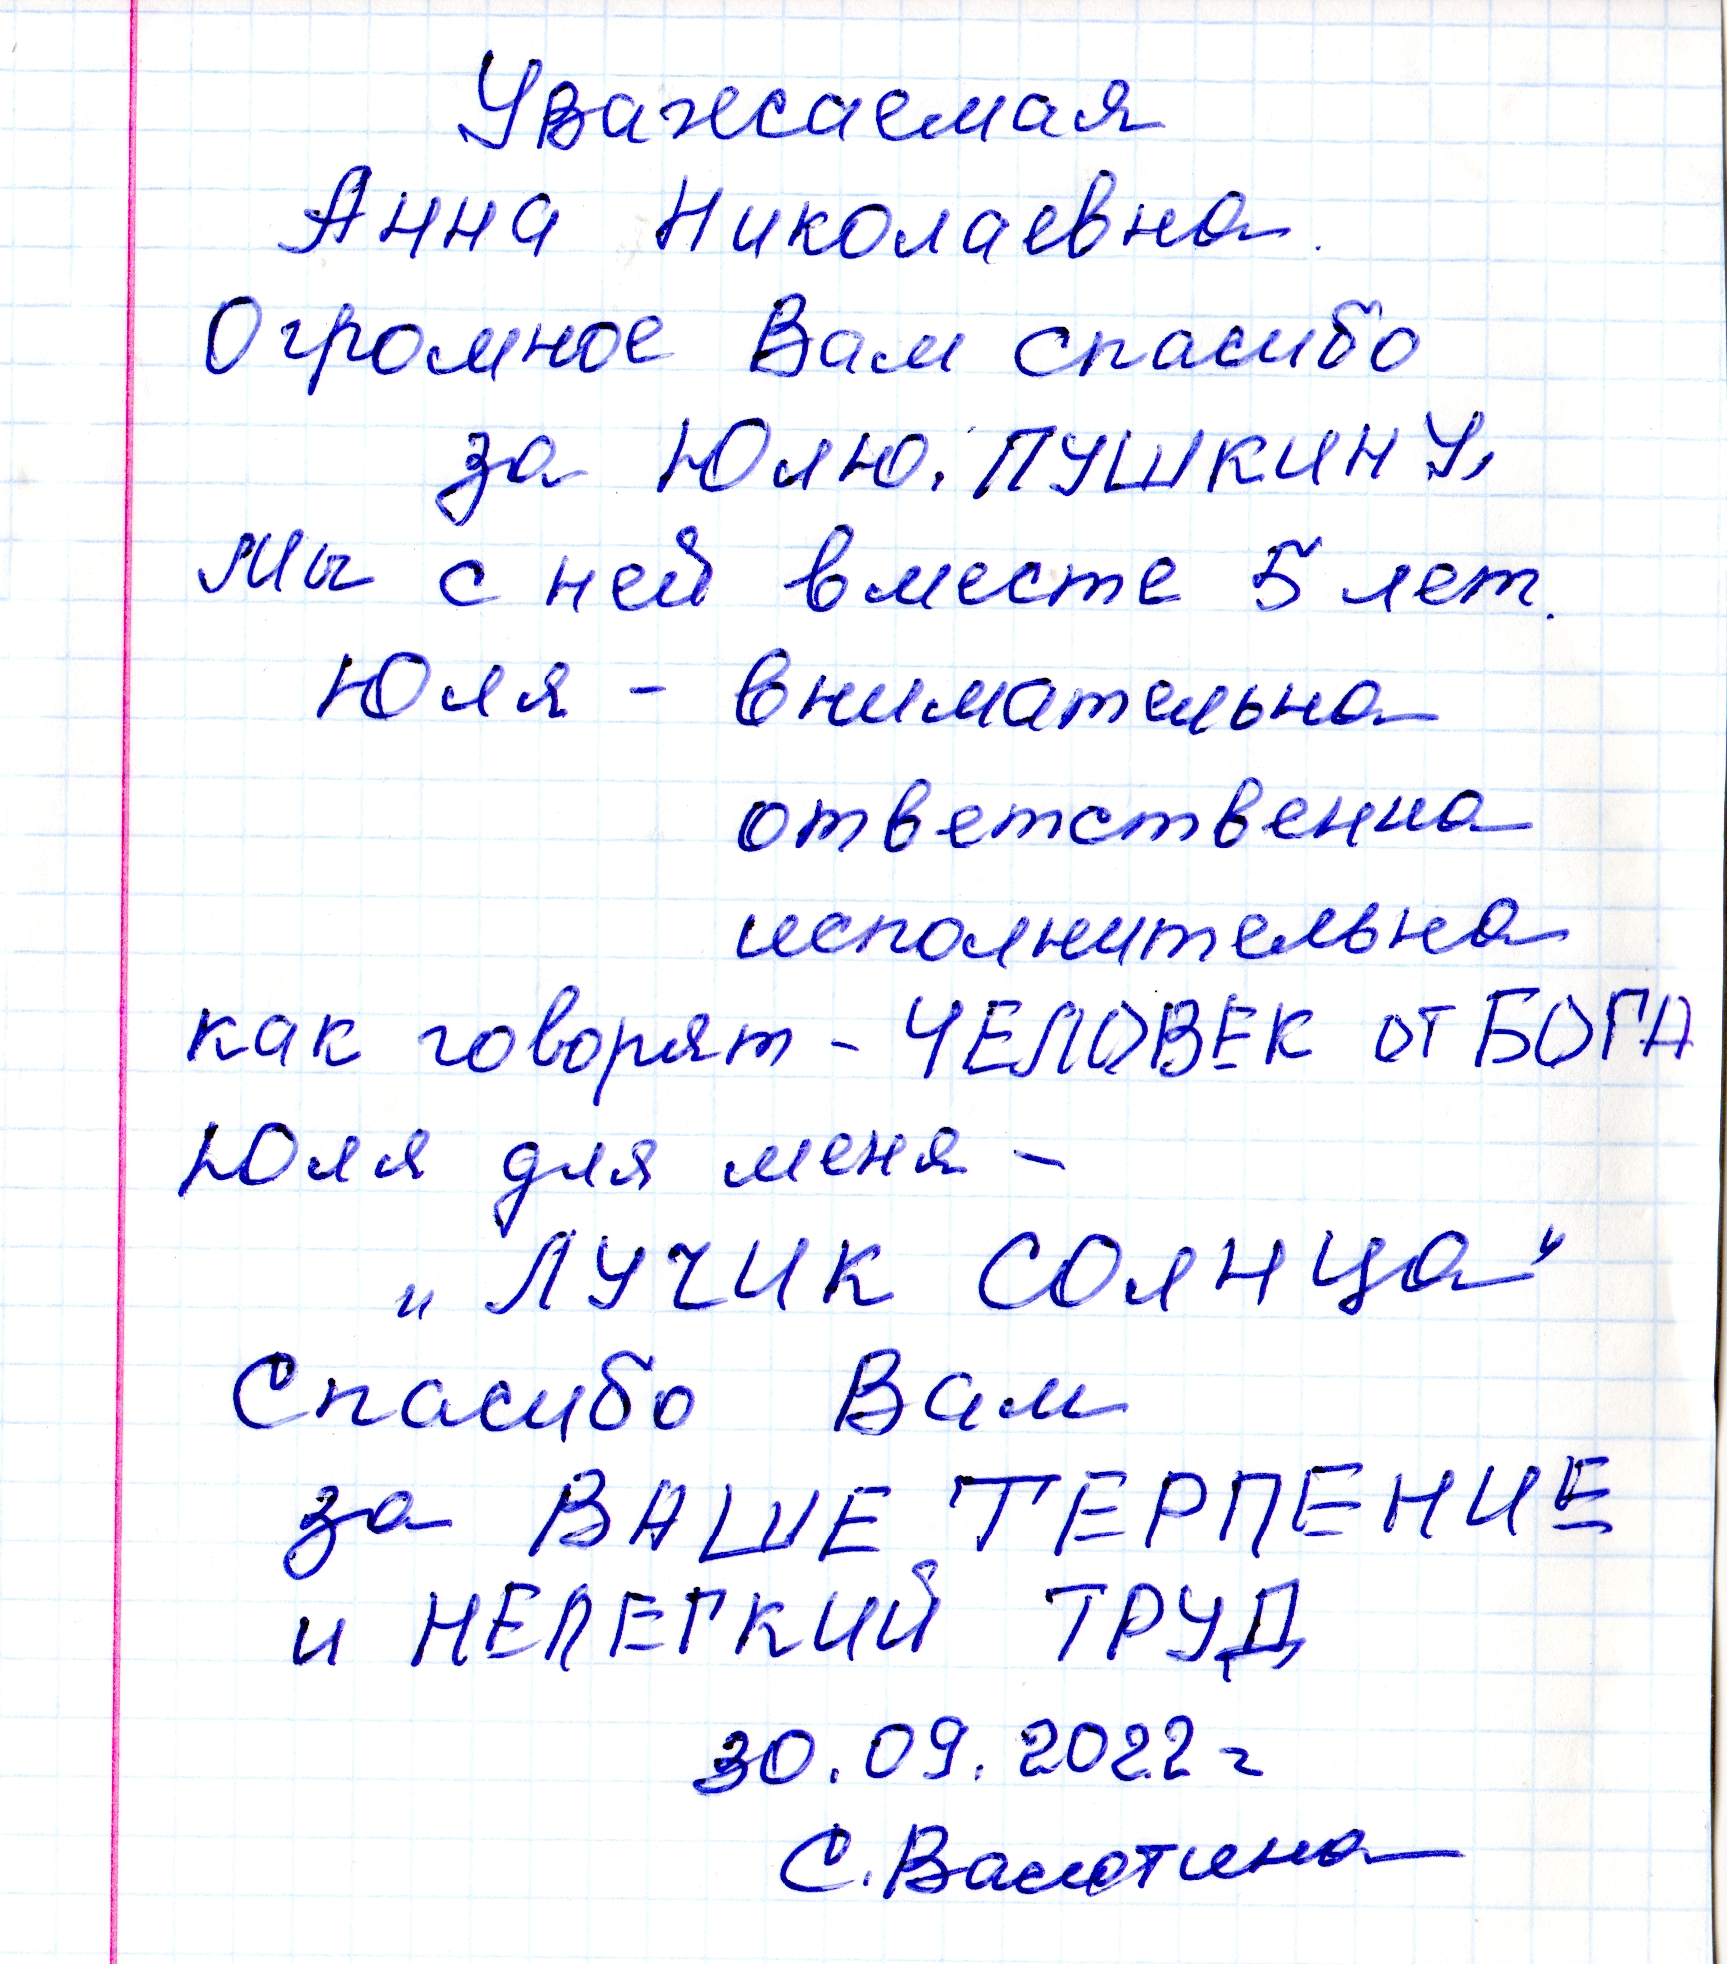 Уважаемая
Анна Николаевна.
Огромное Вам спасибо
за Юлю. ПУШКИНУ,
Мы с ней вместе 5 лет.
Юля - внимательна
ответственна
исполнительна
как говорят - ЧЕЛОВЕК от БОГА
Юля для меня -
„ЛУЧИК СОЛНЦа"
Спасибо Вам
за ВАШЕ ТЕРПЕНИЕ
и НЕЛЕГКИЙ ТРУД
30.09.2022 г
С.